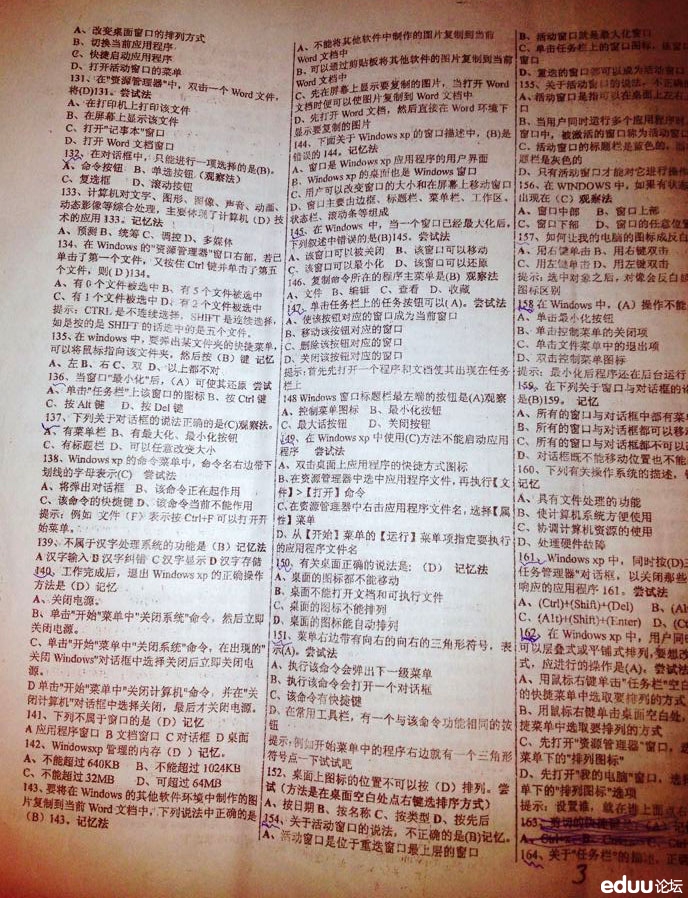 A、改变桌面窗口的排列方式
B、切换当前应用程序
C、快捷启动应用程序
D、打开活动窗口的菜单
131、在"资源管理器"中，双击一个Word文件，
将(D)131。尝试法
A、在打印机上打印该文件
B、在屏幕上显示该文件
C、打开"记事本"窗口
D、打开Word文档窗口
132、在对话框中，只能进行一项选择的是(B)。
A、命令按钮 B、单选按钮（观察法）
C、复选框 D、滚动按钮
133、计算机对文字、图形、图像、声音、动画、
动态影像等综合处理，主要体现了计算机（D）技
术的应用133。记忆法
A、预测 B、统筹 C、调控 D、多媒体
134、在Windows的"资源管理器"窗口右部，若已
单击了第一个文件，又按住Ctrl键并单击了第五
个文件，则(D)134。
A、有0个文件被选中 B、有5个文件被选中
C、有1个文件被选中 D、有2个文件被选中
提示：CTRL是不连续选择，SHIFT是连续选择，
如是按的是SHIFT的话选中的是五个文件。
135、在windows中，要弹出某文件夹的快捷菜单，
可以将鼠标指向该文件夹，然后按（B）键 记忆
A、左 B、右 C、双 D、以上都不对
136、当窗口"最小化"后，（A）可使其还原 尝试
A、单击"任务栏"上该窗口的图标 B、按Ctrl键
C、按Alt键 D、按Del键
137、下列关于对话框的说法正确的是(C)观察法。
A、有菜单栏 B、有最大化、最小化按钮
C、有标题栏 D、可以任意改变大小
138、Windows xp的命令菜单中，命令名右边带下
划线的字母表示(C) 尝试法
A、将弹出对话框 B、该命令正在起作用
C、该命令的快捷键 D、该命令当前不能作用
提示：例如 文件（F）表示按Ctrl+F可以打开开
始菜单。
139、不属于汉字处理系统的功能是（B）记忆法
A汉字输入B汉字纠错 C汉字显示D汉字存储
140、工作完成后，退出Windows xp的正确操作
方法是（D）记忆
A、关闭电源。
B、单击"开始"菜单中"关闭系统"命令，然后立即
关闭电源。
C、单击"开始"菜单中"关闭系统"命令，在出现的"
关闭Windows"对话框中选择关闭后立即关闭电
源。
D单击"开始"菜单中"关闭计算机"命令，并在"关
闭计算机"对话框中选择关闭，最后才关闭电源。
141、下列不属于窗口的是（D）记忆
A应用程序窗口 B文档窗口 C对话框 D桌面
142、Windowsxp管理的内存（D）记忆。
A、不能超过640KB B、不能超过1024KB
C、不能超过32MB D、可超过64MB
143、要将在Windows的其他软件环境中制作的图
片复制到当前Word文档中，下列说法中正确的是
（B）143。记忆法
A、不能将其他软件中制作的图片复制到当前
Word文档中
B、可以通过剪贴板将其他软件的图片复制到当前
Word文档中
C、先在屏幕上显示要复制的图片，当打开Word
文档时便可以使图片复制到Word文档中
D、先打开Word文档，然后直接在Word环境下
显示要复制的图片
144、下面关于Windows xp的窗口描述中，(B)是
错误的144。记忆法
A、窗口是Windows xp应用程序的用户界面
B、Windows xp的桌面也是Windows窗口
C、用户可以改变窗口的大小和在屏幕上移动窗口
D、窗口主要由边框、标题栏、菜单栏、工作区、
状态栏、滚动条等组成
145、在Windows中，当一个窗口已经最大化后，
下列叙述中错误的是(B)145。尝试法
A、该窗口可以被关闭 B、该窗口可以移动
C、该窗口可以最小化 D、该窗口可以还原
146、复制命令所在的程序主菜单是(B) 观察法
A、文件 B、编辑 C、查看 D、收藏
147、单击任务栏上的任务按钮可以(A)。尝试法
A、使该按钮对应的窗口成为当前窗口
B、移动该按钮对应的窗口
C、删除该按钮对应的窗口
D、关闭该按钮对应的窗口
提示:首先打开一个程序和文档使其出现在任务
栏上
148 Windows窗口标题栏最左端的按钮是(A)观察
A、控制菜单图标 B、最小化按钮
C、最大话按钮 D、关闭按钮
149、在Windows xp中使用(C)方法不能启动应用
程序 尝试法
A、双击桌面上应用程序的快捷方式图标
B、在资源管理器中选中应用程序文件，再执行【文
件】>【打开】命令
C、在资源管理器中右击应用程序文件名，选择【属
性】菜单
D、从【开始】菜单的【运行】菜单项指定要执行
的应用程序文件名
150、有关桌面正确的说法是:（D） 记忆法
A、桌面的图标都不能移动
B、桌面不能打开文档和可执行文件
C、桌面的图标不能排列
D、桌面的图标能自动排列
151、菜单右边带有向右的向右的三角形符号，表
示(A)。尝试法
A、执行该命令会弹出下一级菜单
B、执行该命令会打开一个对话框
C、该命令有快捷键
D、在常用工具栏，有一个与该命令功能相同的按
钮
提示:例如开始菜单中的程序右边就有一个三角形
符号点一下试试吧
152、桌面上图标的位置不可以按（D）排列。尝
试（方法是在桌面空白处点右键选排序方式）
A、按日期 B、按名称 C、按类型 D、按先后
154、关于活动窗口的说法，不正确的是(B)记忆。
A、活动窗口是位于重迭窗口最上层的窗口
B、活动窗口就是最大化窗口
C、单击任务栏上的窗口图标，该窗口
窗口
D、重迭的窗口都可以成为活动窗口
155、关于活动窗口的说法，不正确
A、活动窗口是指可以在桌面上左右
口
B、当用户同时运行多个应用程序时，
窗口中，被激活的窗口称为活动窗口
C、活动窗口的标题栏是蓝色的，
题栏是灰色的
D、只有活动窗口才能对它进行操作
156、在WINDOWS中，如果有状态
出现在（C）观察法
A、窗口中部 B、窗口上部
C、窗口下部 D、窗口的任意位置
157、如何让我的电脑的图标成反白
A、用右键单击 B、用右键双击
C、用左键单击 D、用左键双击
提示，选中对象之后，对像会反白
图标区别
158、在Windows中，(A）操作不能
A、单击最小化按钮
B、单击控制菜单的关闭项
C、单击文件菜单中的退出项
D、双击控制菜单图标
提示：最小化后程序还在后台运行
159、在下列关于窗口与对话框的
是(B)159。 记忆
A、所有的窗口与对话框中都有菜
B、所有的窗口与对话框都可以移
C、所有的窗口与对话框都不可以
D、对话框既不能移动位置也不能
160、下列有关操作系统的描述，
记忆
A、具有文件处理的功能
B、使计算机系统方便使用
C、协调计算机资源的使用
D、处理硬件故障
161、Windows xp中，同时按(D)三
任务管理器"对话框，以关闭那些
响应的应用程序161。尝试法
A、(Ctrl)+(Shift)+(Del) B、(Al
C、(Alt)+(Shift)+(Enter) D、(Ct
162、在Windows xp中，用户同时
可以层叠式或平铺式排列，要想改
式，应进行的操作是(A)。尝试法
A、用鼠标右键单击"任务栏"空白
的快捷菜单中选取要排列的方式
B、用鼠标右键单击桌面空白处，
捷菜单中选取要排列的方式
C、先打开"资源管理器"窗口，选
菜单下的"排列图标"
D、先打开"我的电脑"窗口，选择
单下的"排列图标"选项
提示：设置谁，就在谁上面点右
163、
164、关于"任务栏"的描述，正确
3
eduu论坛